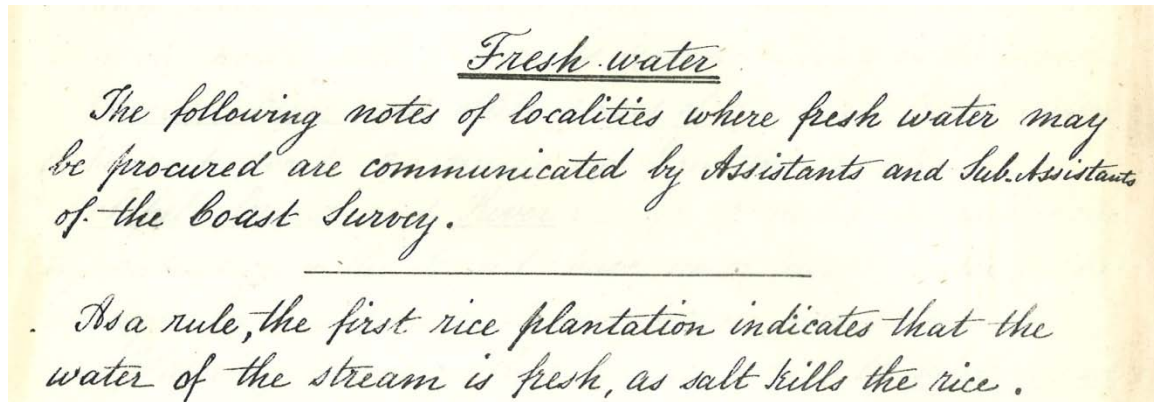 Fresh water
The following notes of localities where fresh water may
be procured are communicated by Assistants and Sub-Assistants
of the Coast Survey.
As a rule, the first rice plantation indicates that the
water of the stream is fresh, as salt kills the rice.